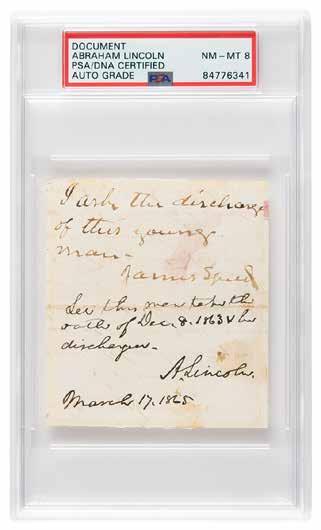 DOCUMENT
ABRAHAM LINCOLN NM – MT 8
PSA/DNA CERTIFIED
AUTO GRADE PSA 84776341
I ask the discharge
of this young
man—
James Speed
Let this man take the
oath of Dec. 8. 1863 & be
discharged.
A. Lincoln
March 17. 1865